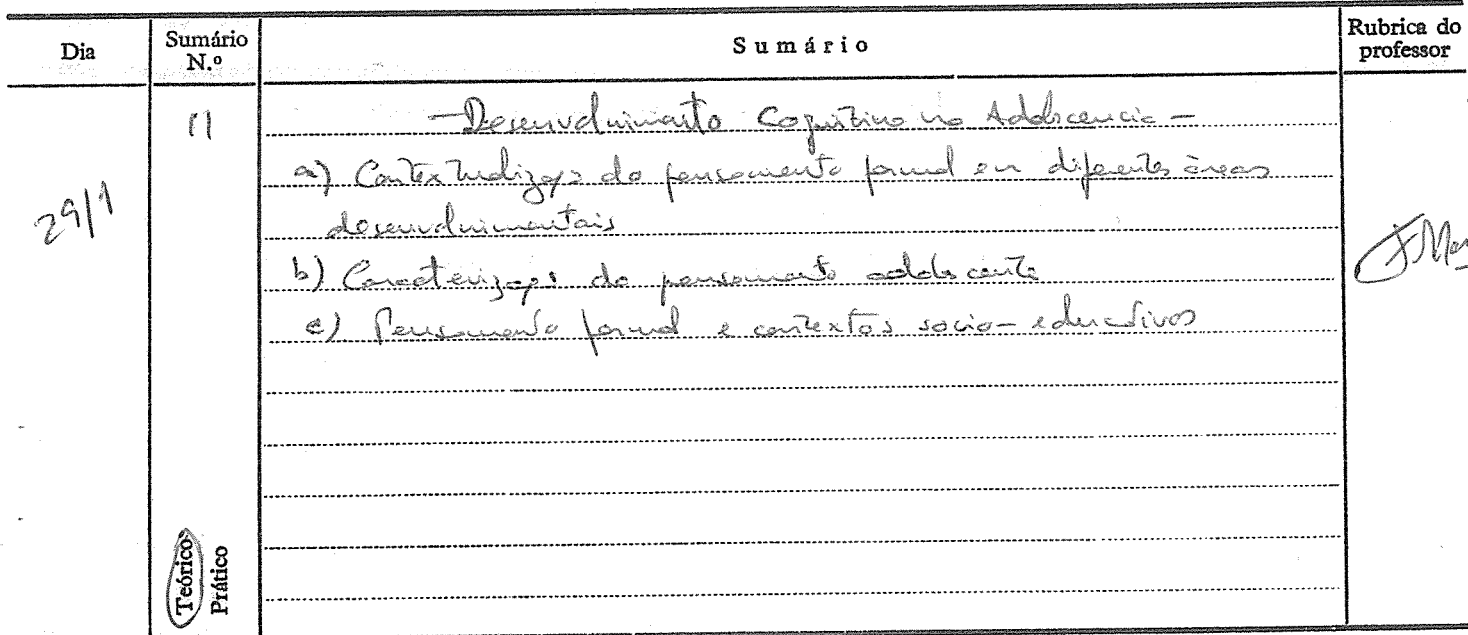 Dia
Sumário N.º
Sumário
Rubrica do professor
29/1
11
- Desenvolvimento Cognitivo na Adolescencia -
a) Contextualização do pensamento formal em diferentes áreas
desenvolvimentais
b) Caracterização do pensamento adolescente
c) Pensamento formal e contextos socio-educativos
Teórico
Prático